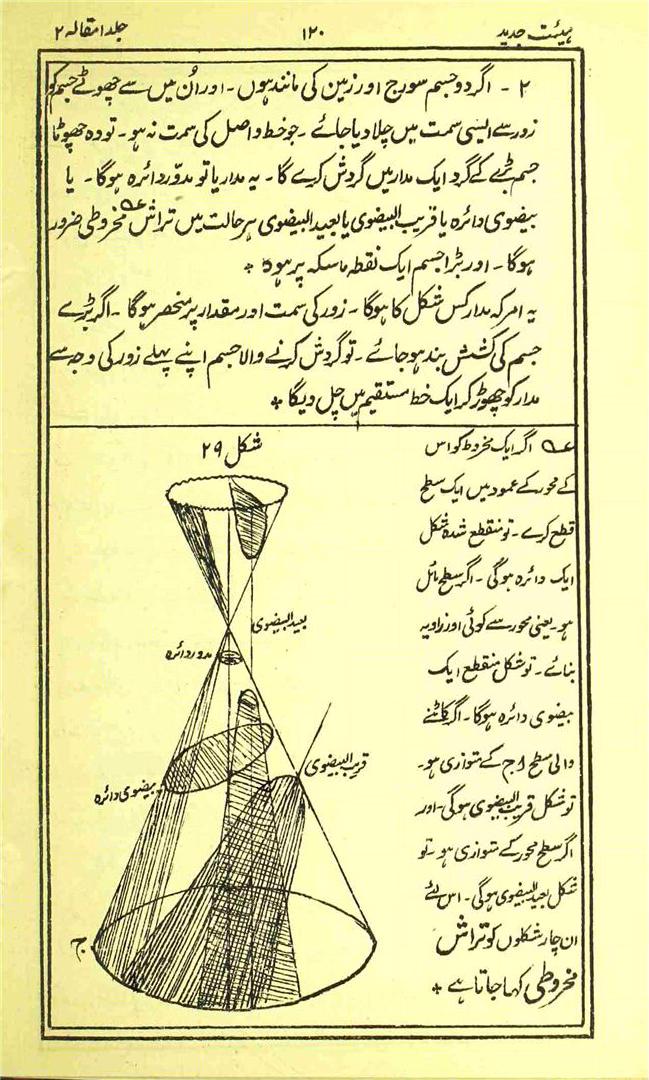 ہیئت جدید ۱۲۰ جلد ۱ مقالہ ۲
۲ - اگر دو جسم سورج اور زمین کی مانند ہوں - اور اُن میں سے چھوٹے جسم کو
زور سے ایسی سمت میں چلا دیا جائے - جو خط واصل کی سمت نہ ہو - تو وہ چھوٹا
جسم بڑے کے گرد ایک مدار میں گردش کرے گا - یہ مدار یا تو مدوّر دائرہ ہوگا - یا
بیضوی دائرہ یا قریب البیضوی یا بعید البیضوی ہر حالت میں تراش مخروطی ضرور
ہوگا - اور بڑا جسم ایک نقطہ ماسکہ پر ہوہ *
یہ امر کہ مدار کس شکل کا ہوگا - زور کی سمت اور مقدار پر منحصر ہوگا - اگر بڑے
جسم کی کشش بند ہو جائے - تو گردش کرنے والا جسم اپنے پہلے زور کی وجہ سے
مدار کو چھوڑ کر ایک خط مستقیم میں چل دیگا *
اگر ایک مخروط کو اس
کے محور کے عمود میں ایک سطح
قطع کرے - تو منقطع شدہ شکل
ایک دائرہ ہوگی - اگر سطح مائل
ہو - یعنی محور سے کوئی اور زاویہ
بنائے - تو شکل منقطع ایک
بیضوی دائرہ ہوگا - اگر کاٹنے
والی سطح اج کے متوازی ہو -
تو شکل قریب البیضوی ہوگی - اور
اگر سطح محور کے متوازی ہو - تو
شکل بعید البیضوی ہوگی - اس لئے
ان چار شکلوں کو تراش
مخروطی کہا جاتا ہے *
شکل ۲۹
بعید البیضوی
مدور دائرہ
قریب البیضوی
بیضوی دائرہ
ج